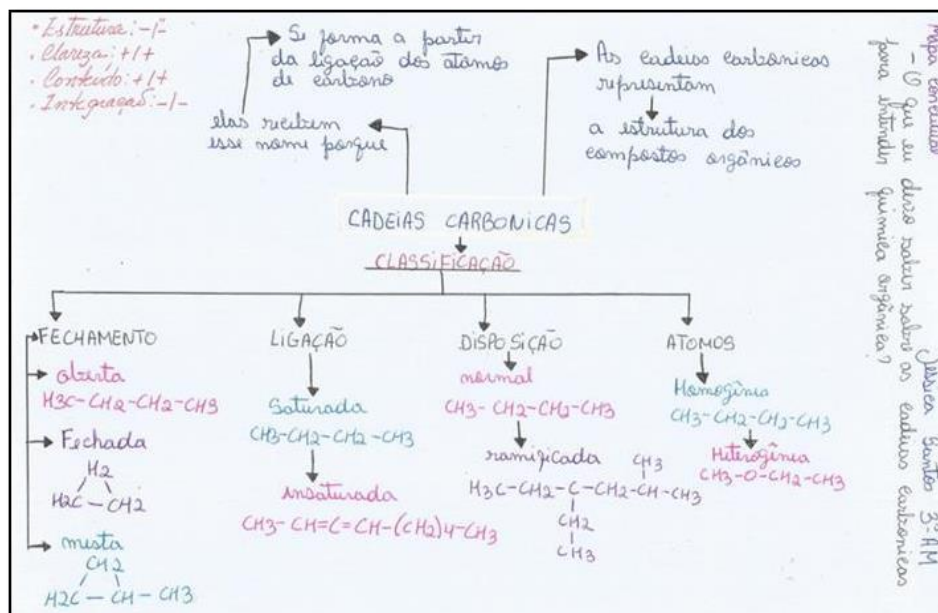 • Estrutura: -/-
• Clareza: +/+
• Conteúdo: +/+
• Integração: -/-
Se forma a partir
da ligação dos átomos
de carbono
elas recebem
esse nome porque
As cadeias carbonicas
representam
a estrutura dos
compostos orgânicos
CADEIAS CARBONICAS
CLASSIFICAÇÃO
FECHAMENTO
aberta
H3C-CH2-CH2-CH3
Fechada
H2
H2C — CH2
mista
CH2
H2C — CH — CH3
LIGAÇÃO
Saturada
CH3-CH2-CH2-CH3
insaturada
CH3-CH=C=CH-(CH2)4-CH3
DISPOSIÇÃO
normal
CH3-CH2-CH2-CH3
ramificada
CH3
H3C-CH2-C-CH2-CH-CH3
CH2
CH3
ATOMOS
Homogênia
CH3-CH2-CH2-CH3
Heterogênia
CH3-O-CH2-CH3
Mapa conceitual
Jéssica Santos 3º AM
- O que eu devo saber sobre as cadeias carbonicas
para entender quimica orgânica?